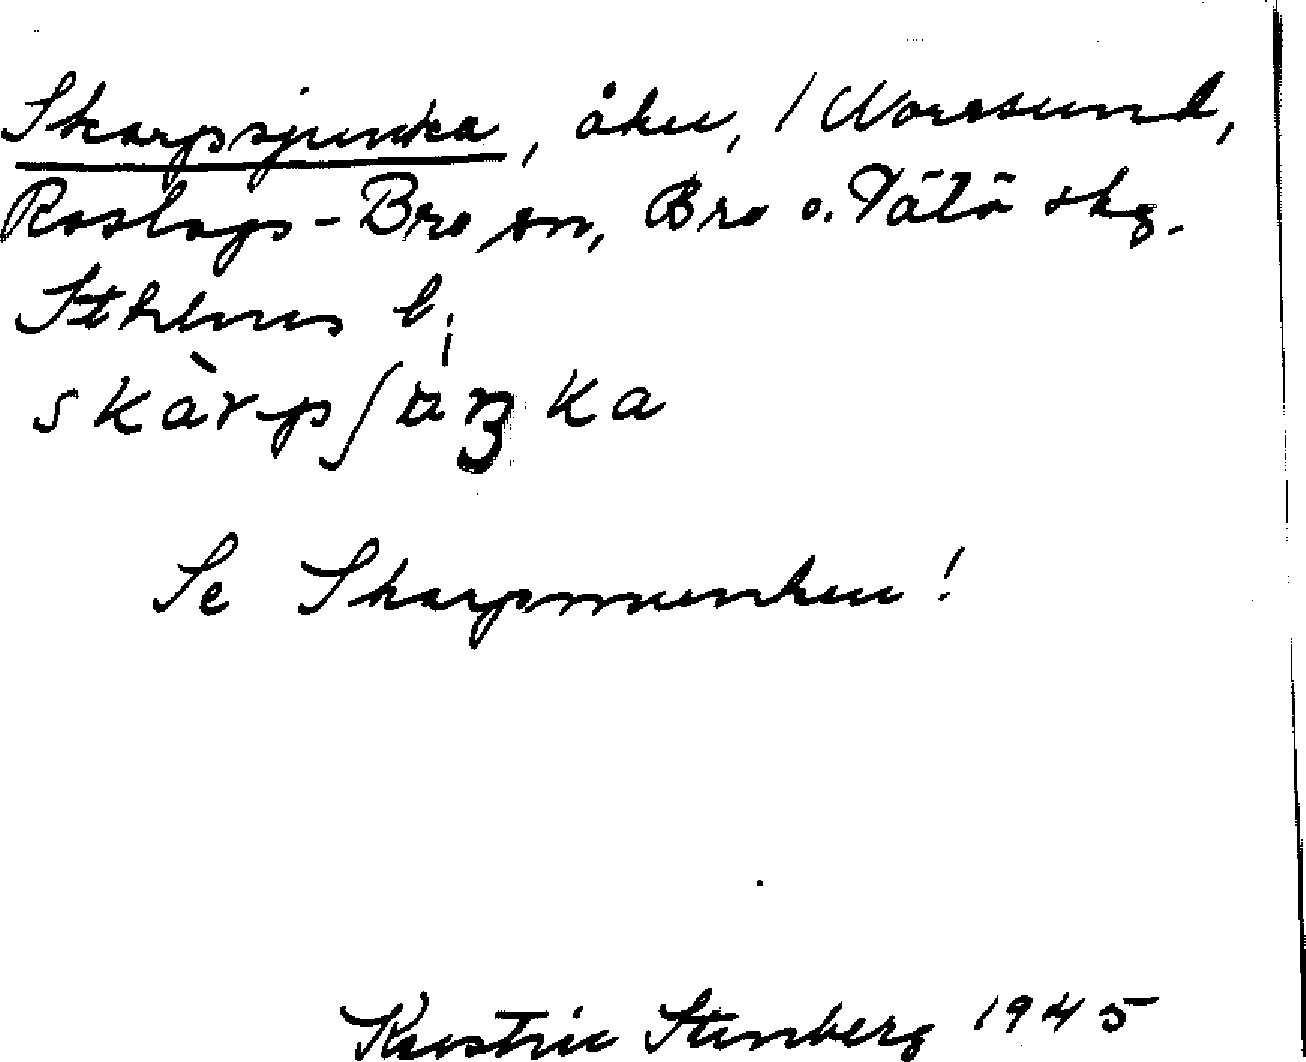 Skarpsjunka, åker, / Norrsund,
Roslags-Bro sn, Bro o. Vätö skg.
Sthlms l.
skàrpʃuŋka
Se Skarpmunken!
Kerstin Stenberg 1945